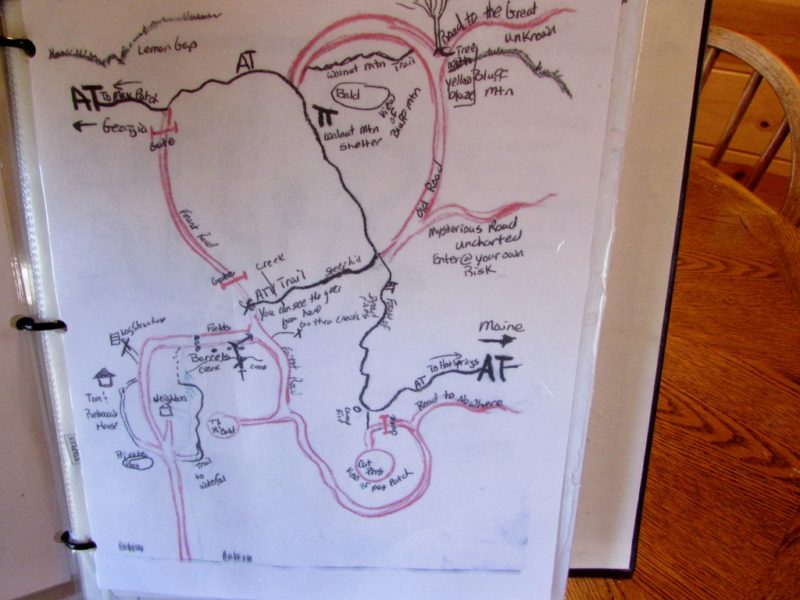 Lemon Gap
AT
Road to the Great
unknown
Walnut Mtn Trail
Tree
with
yellow
blaze
Bluff
Mtn
AT
To Max Patch
Georgia
Gate
Bald
View
of
Bluff Mtn
Walnut Mtn
Shelter
Old Road
Forest Road
Mysterious Road
uncharted
Enter@your own
Risk
Gate
Creek
ATV Trail
Steep hill
You can see the gate
from here
Go thru
AT
Maine
AT
AT To Hot Springs
Log Structure
Fields
Barrels
creek
Forest Road
Tom &
Rebecca's
House
Neighbor
Bald
Private
Trail
to
waterfall
Camp
Gate
Road to Nowhere
Cat
Pens
View of Max Patch